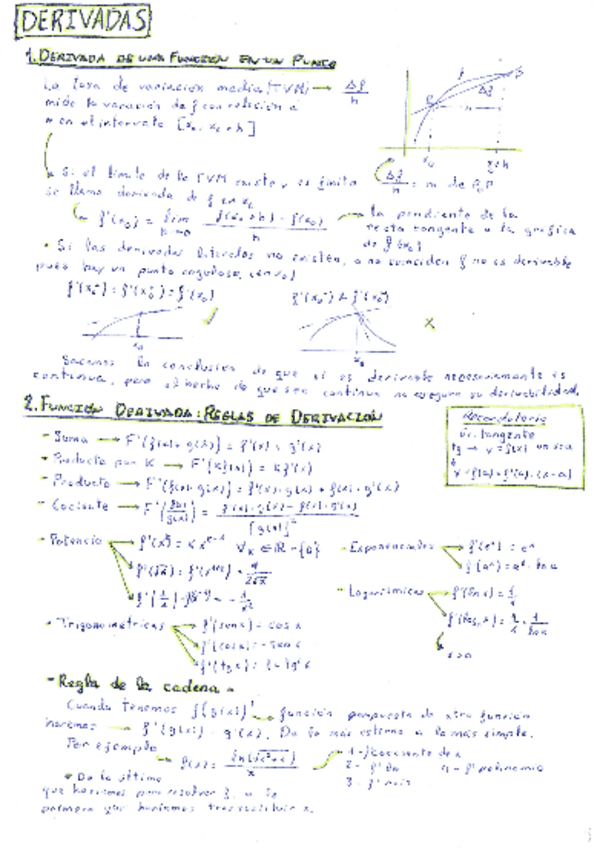 DERIVADAS
1. DERIVADA DE UNA FUNCIÓN EN UN PUNTO
La tasa de variación media (TVM) → Δf/h
mide la variación de f con relación a
x en el intervalo [x₀, x₀+h]
Si el límite de la TVM existe y es finito
se llama derivada de f en x₀
Δf/h = m de
f'(x₀) = lim h→0 f(x₀+h) - f(x₀) / h → la pendiente de la
recta tangente a la gráfica
de f(x₀)
• Si las derivadas laterales no existen, o no coinciden f no es derivable
pues hay un punto anguloso, en x₀)
f'(x₀⁻) = f'(x₀⁺) = f'(x₀)
f'(x₀⁻) ≠ f'(x₀⁺)
x₀
x₀
X
Sacamos la conclusión de que si es derivable necesariamente es
continua, pero el hecho de que sea continua no asegura su derivabilidad.
2. FUNCIÓN DERIVADA: REGLAS DE DERIVACIÓN
Recordatorio
Ec. tangente
tg → y = f(x) en x=a
y = f(a) + f'(a) · (x-a)
- Suma → F'(f(x)+g(x)) = f'(x) + g'(x)
- Producto por K → F'(Kf(x)) = K f'(x)
- Producto → F'(f(x)·g(x)) = f'(x)·g(x) + f(x)·g'(x)
- Cociente → F'(f(x)/g(x)) = f'(x)·g(x) - f(x)·g'(x) / [g(x)]²
- Potencia
∀K ∈ ℝ - {0}
f'(√x) = f'(x^1/2) = 1/2√x
- Exponenciales → f'(eˣ) = eˣ
f'(aˣ) = aˣ · ln a
- Logarítmicas → f'(ln x) = 1/x
x>0
- Trigonométricas → f'(sen x) = cos x
- Regla de la cadena
Cuando tenemos f(g(x))' → función compuesta de otra función
haremos → f'(g(x)) · g'(x). De lo más externo a lo más simple.
Por ejemplo
1 - f' cociente de x
2 - f' ln
4 - f' polinomio
3 - f' raíz
• De lo último
que haríamos para resolver f, a lo
primero que haríamos tras sustituir x.